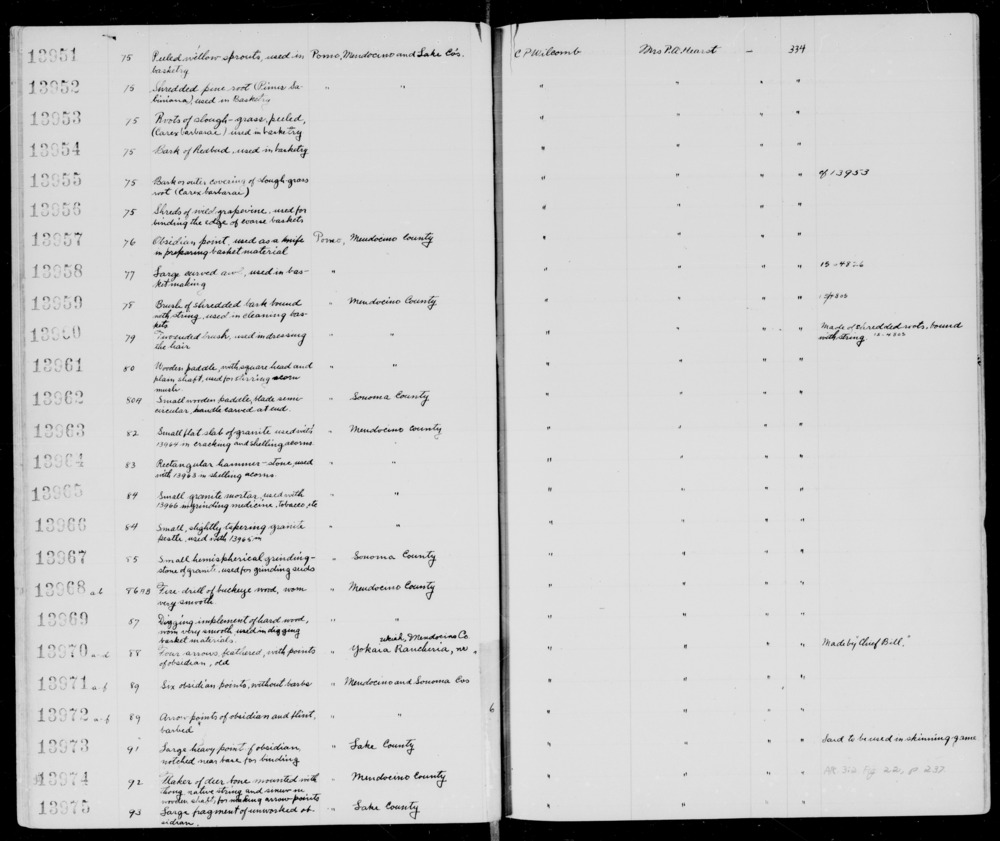 13951 75 Peeled willow sprouts, used in Pomo, Mendocino and Lake Co's. C P Wilcomb Mrs P.A. Hearst — 334
basketry
13952 75 Shredded pine root (Pinus Sa- " " " " " "
biniana), used in Basketry
13953 75 Roots of slough-grass, peeled, " " " "
(Carex barbarae) used in basketry
13954 75 Bark of Redbud, used in basketry " " " "
13955 75 Bark or outer covering of slough-grass " " " " of 13953
root (Carex barbarae)
13956 75 Shreds of wild grapevine, used for " " " "
binding the edge of coarse baskets
13957 76 Obsidian point, used as a knife Pomo, Mendocino County " " " "
in preparing basket material
13958 77 Large curved awl, used in bas- " " " " "
ket making
13959 78 Brush of shredded bark bound " Mendocino County " " " "
with string, used in cleaning bas-
kets
13960 79 Two ended brush, used in dressing " " " " " " Made of shredded roots, bound
the hair with string
13961 80 Wooden paddle, with square head and " " " " " "
plain shaft, used for stirring acorn
mush
13962 80A Small wooden paddle, blade semi- " Sonoma County " " " "
circular, handle carved at end.
13963 82 Small flat slab of granite used with " Mendocino County " " " "
13964 in cracking and shelling acorns
13964 83 Rectangular hammer-stone, used " " " " " "
with 13963 in shelling acorns
13965 84 Small granite mortar, used with " " " " " "
13966 in grinding medicine, tobacco, etc
13966 84 Small, slightly tapering granite " " " " " "
pestle, used with 13965
13967 85 Small hemispherical grinding- " Sonoma County " " " "
stone of granite, used for grinding seeds
13968 a,b 86 AB Fire drill of buckeye wood, worn " Mendocino County " " " "
very smooth
13969 87 Digging implement of hard wood, " " " " " "
worn very smooth, used in digging
basket materials. Ukiah, Mendocino Co
13970 88 Four arrows, feathered, with points " Yokaia Rancheria, nr " " " " Made by "Chief Bill."
of obsidian, old
13971 a-f 89 Six obsidian points, without barbs " Mendocino and Sonoma Cos " " " "
13972 a-f 89 Arrow points of obsidian and flint, " " 6 " " " "
barbed
13973 91 Large heavy point of obsidian, " Lake County " " " " Said to be used in skinning game
notched near base for binding
13974 92 Flaker of deer bone mounted with " Mendocino County " " " "
thong, native string and sinew on
wooden shaft, for making arrow points
13975 93 Large fragment of unworked ob- " Lake County " " " "
sidian.